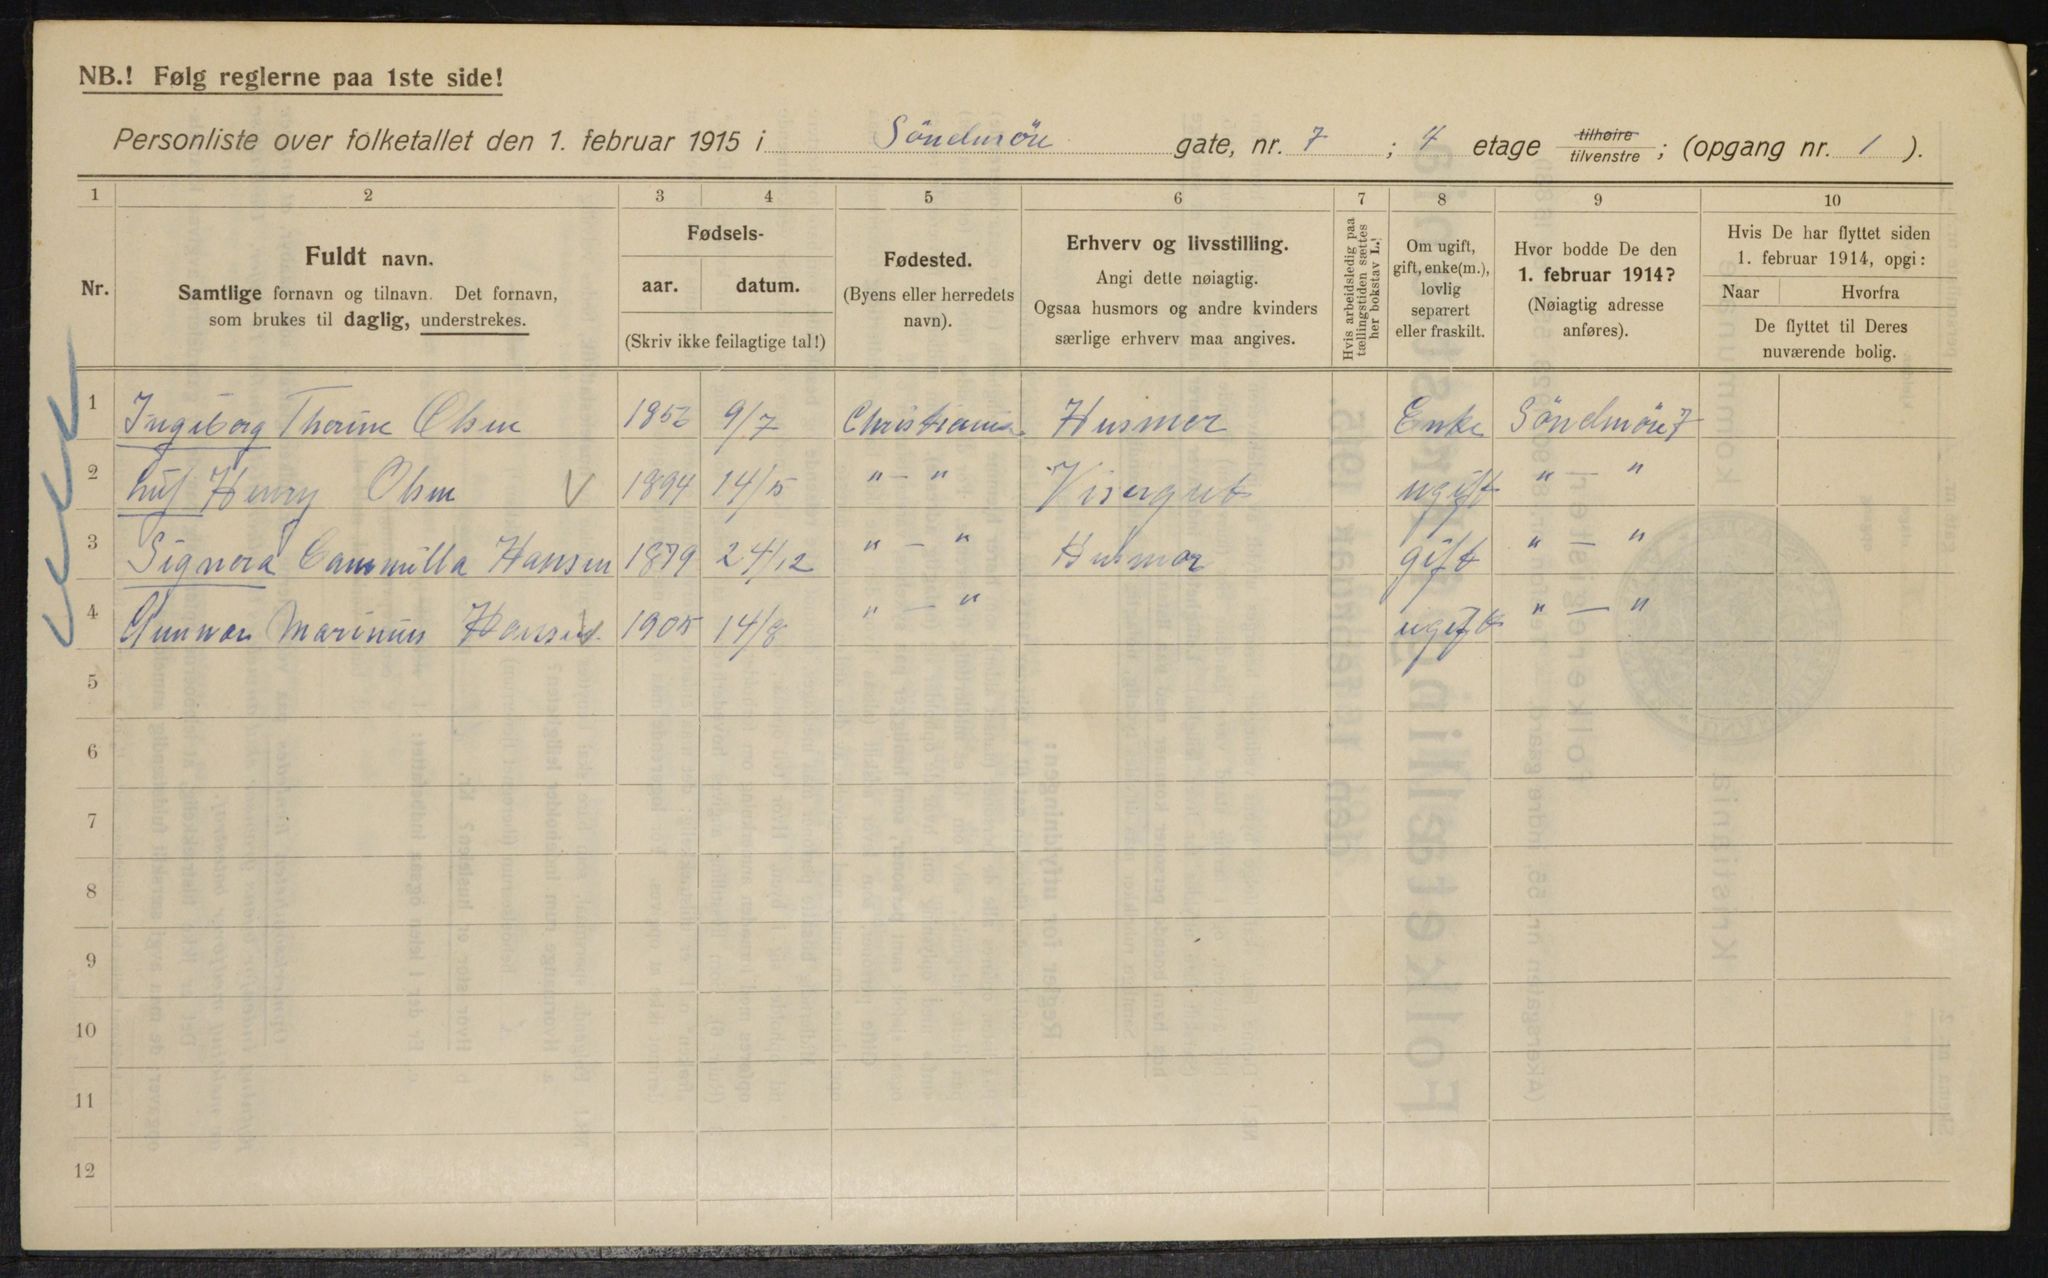 NB.! Følg reglerne paa 1ste side!
Personliste over folketallet den 1. februar 1915 i Söndmöre gate, nr. 7 ; 4 etage tilhøire tilvenstre ; (opgang nr. 1 ).
1 2 3 4 5 6 7 8 9 10
Nr.
Fuldt navn.
Samtlige fornavn og tilnavn. Det fornavn,
som brukes til daglig, understrekes.
Fødsels-
aar. datum.
(Skriv ikke feilagtige tal!)
Fødested.
(Byens eller herredets
navn).
Erhverv og livsstilling.
Angi dette nøiagtig.
Ogsaa husmors og andre kvinders
særlige erhverv maa angives.
Hvis arbeidsledig paa
tællingstiden sættes
her bokstav L.!
Om ugift,
gift, enke(m.),
lovlig
separert
eller fraskilt.
Hvor bodde De den
1. februar 1914?
(Nøiagtig adresse
anføres).
Hvis De har flyttet siden
1. februar 1914, opgi:
Naar Hvorfra
De flyttet til Deres
nuværende bolig.
1 Ingeborg Thorine Olsen 9/7 Christiania Husmor Enke Söndmöre 7
2 Henry Olsen 1894 14/5 " — " Visergut ugift " — "
3 Signora Cammilla Hansen 1879 24/12 " — " Husmor gift " — "
4 Gunnar Marinus Hansen 1905 14/8 " — " ugift " — "
5
6
7
8
9
10
11
12